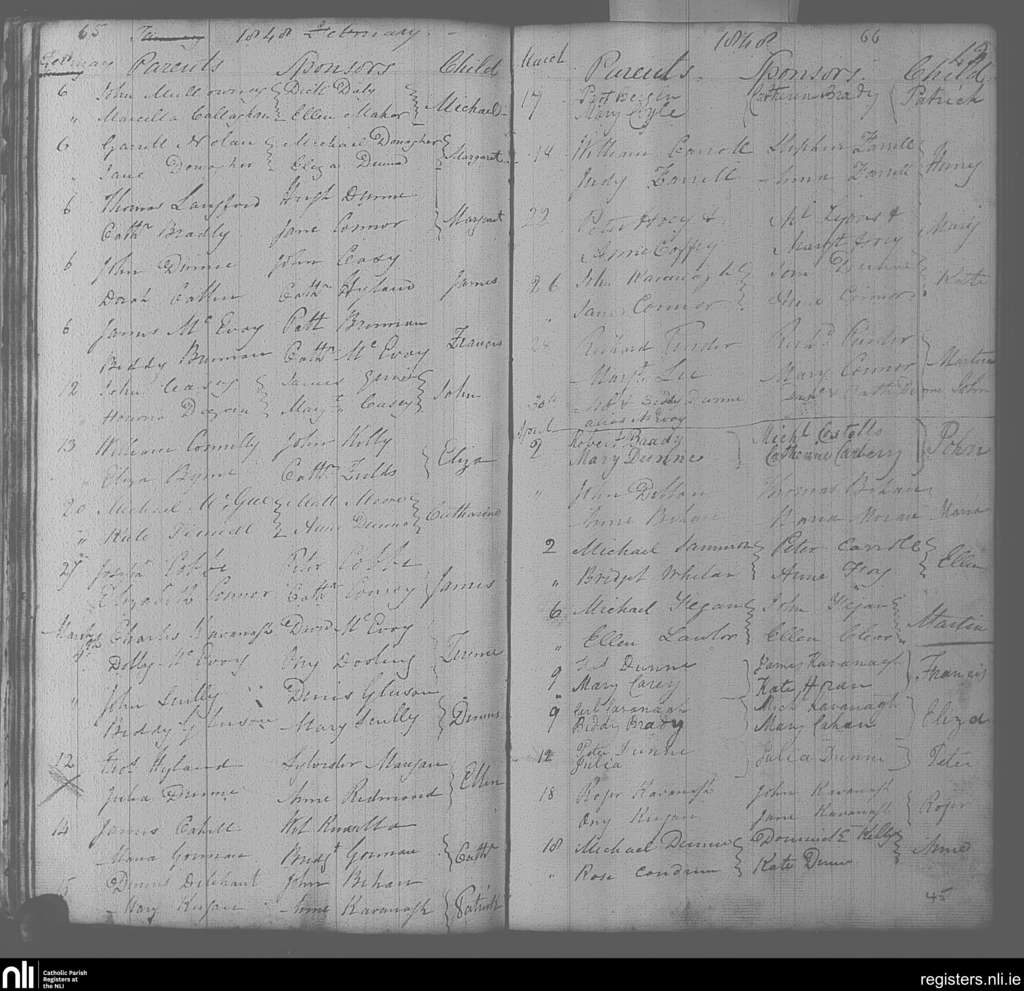 65 January 1848 February
February Parents Sponsors Child
6 John Mullowney Dick Daly
" Marcella Callaghan Ellen Maher Michael
6 Garrett Nolan Michael Donagher
" Jane Donagher Eliza Dunne Margaret
6 Thomas Langford Hugh Dunne
Cathn Bradly Jane Connor Margaret
6 John Dunne John Casy
Cathn Hyland James
6 James McEvoy Patt Brennan
Biddy Brennan Cathn McEvoy Francis
12 John Casey James
Honora Margt Casey John
13 William Connelly John Kelly
Eliza Byrne Cathn Fields Eliza
20 Michael McGee Matt Moore
" Anne Dunne Catharine
27 Joseph Peter
Elizabeth Connor Cathn Conroy James
March 5th Charles Kavanagh David McEvoy
Dolly McEvoy Any Dooling
" John Scully Denis Gleeson
Biddy Gleeson Mary Scully Dennis
12 Hyland Sylvester Mangan
Julia Dunne Anne Redmond Ellen
14 James Cahill
Maria Gorman Bridgt Gorman Cathn
Dennis Delehant John Behan
Mary Keegan Anne Kavanagh Patrick
1848 66
March Parents Sponsors Child
17 Catherine Brady Patrick
Mary Kyle
18 William Carroll Stephen Farrell
Judy Farrell Anna Farrell Henry
22 Peter Ivory & Lyons &
Anne Coffey Margt Ivory Mary
26 John Kavanagh Tom Dunne
" Jane Connor Anne Connor Kate
28 Richard Pender Richd Pender
Margt Lee Mary Connor Martin
30th Biddy Dunne John
alias McEvoy
April
2 Robert Brady Michl Costello
Mary Dunne Catherine Carbery John
" John Dillon Thomas Behan
Anne Behan Maria Moran Maria
2 Michael Sammon Peter Carroll
" Bridget Whelan Anne Ellen
6 Michael Hegan John Hegan
" Ellen Lawlor Ellen Martin
9 Dunne James Kavanagh
" Mary Carey Kate Horan Francis
9 Kavanagh Mick Kavanagh
Biddy Brady Mary Eliza
12 Peter Dunne Julia Dunne Peter
Julia
18 Roger Kavanagh John Kavanagh
Any Keegan Jane Kavanagh Roger
18 Michael Dunne Dominick Kelly
" Rose Condron Kate Dunne Anne
45
nli Catholic Parish Registers at the NLI
registers.nli.ie